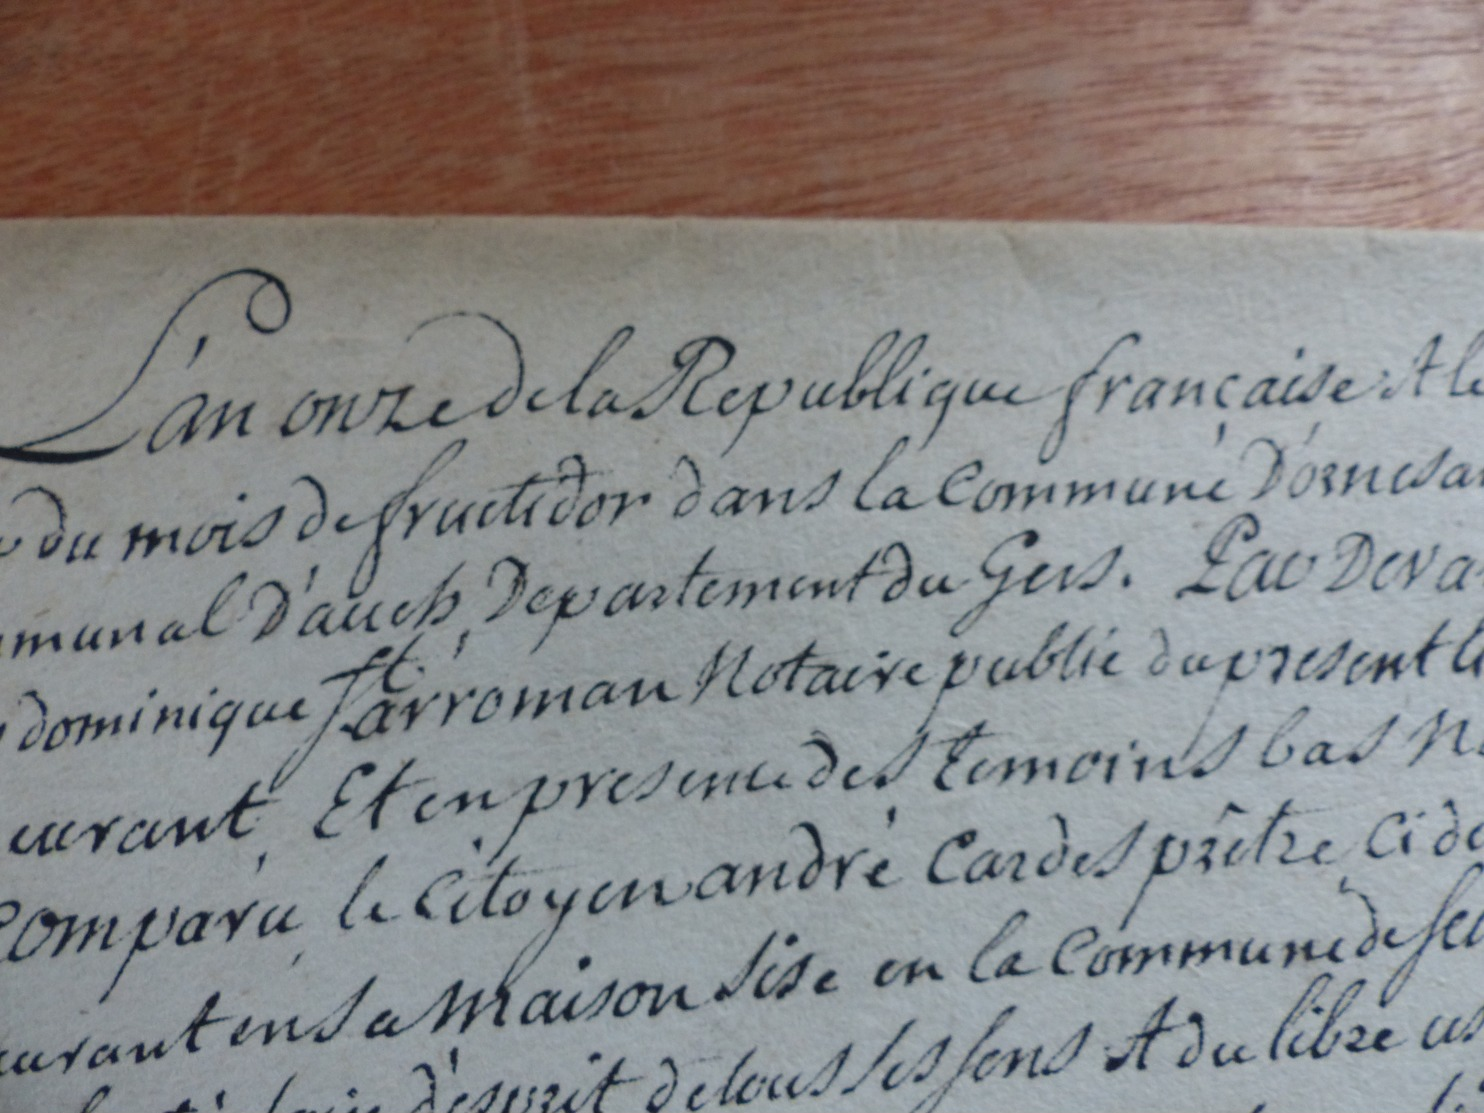 L'an onze de la Republique française Et le
du mois de fructidor dans la Commune D'ornesan
mmunal D'auch, Departement du Gers. Par Deva
dominique Ft. Sarroman Notaire publié du present
eurant, Et en presence des temoins bas N
Comparu le Citoyen andré Cardes prêtre, Ci de
eurant en sa Maison sise en la Commune de Sei
d'esprit de tous ses sens Et du libre us